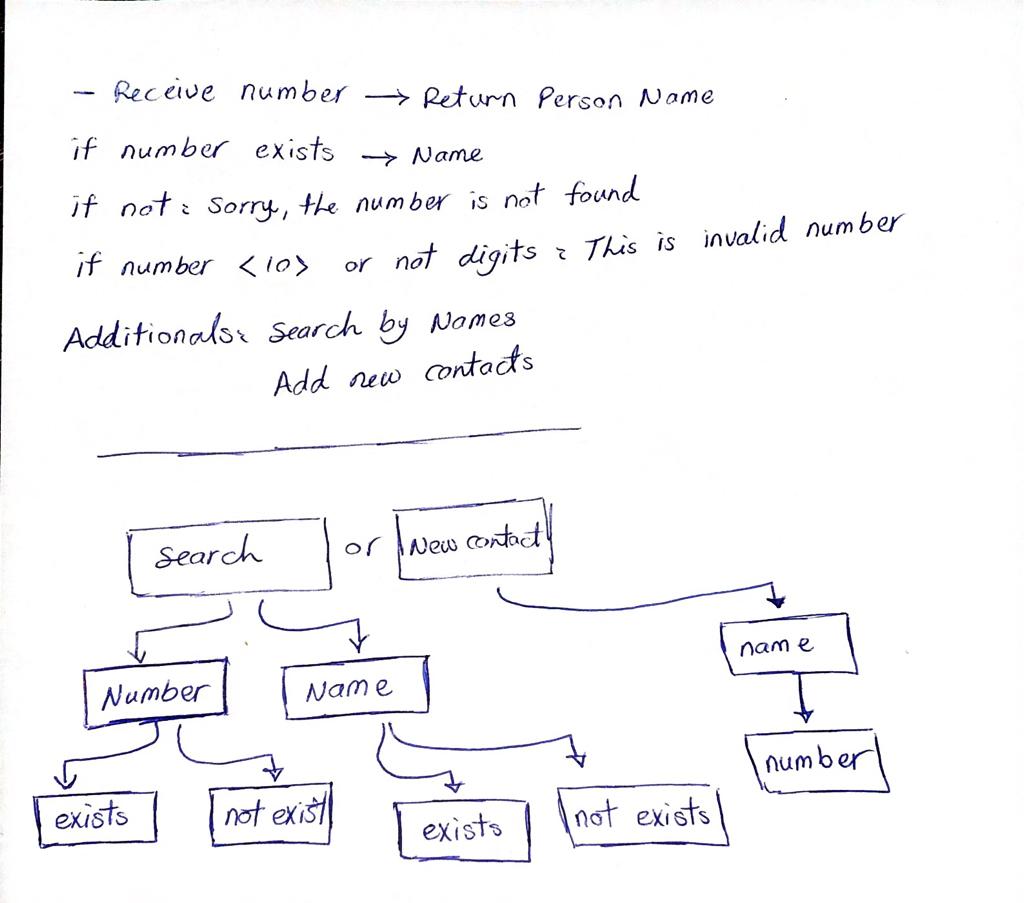 - Receive number → Return Person Name
if number exists → Name
if not: Sorry, the number is not found
if number <10> or not digits: This is invalid number
Additionals: Search by Names
Add new contacts
Search or New contact
name
Number Name
number
exists not exist exists not exists